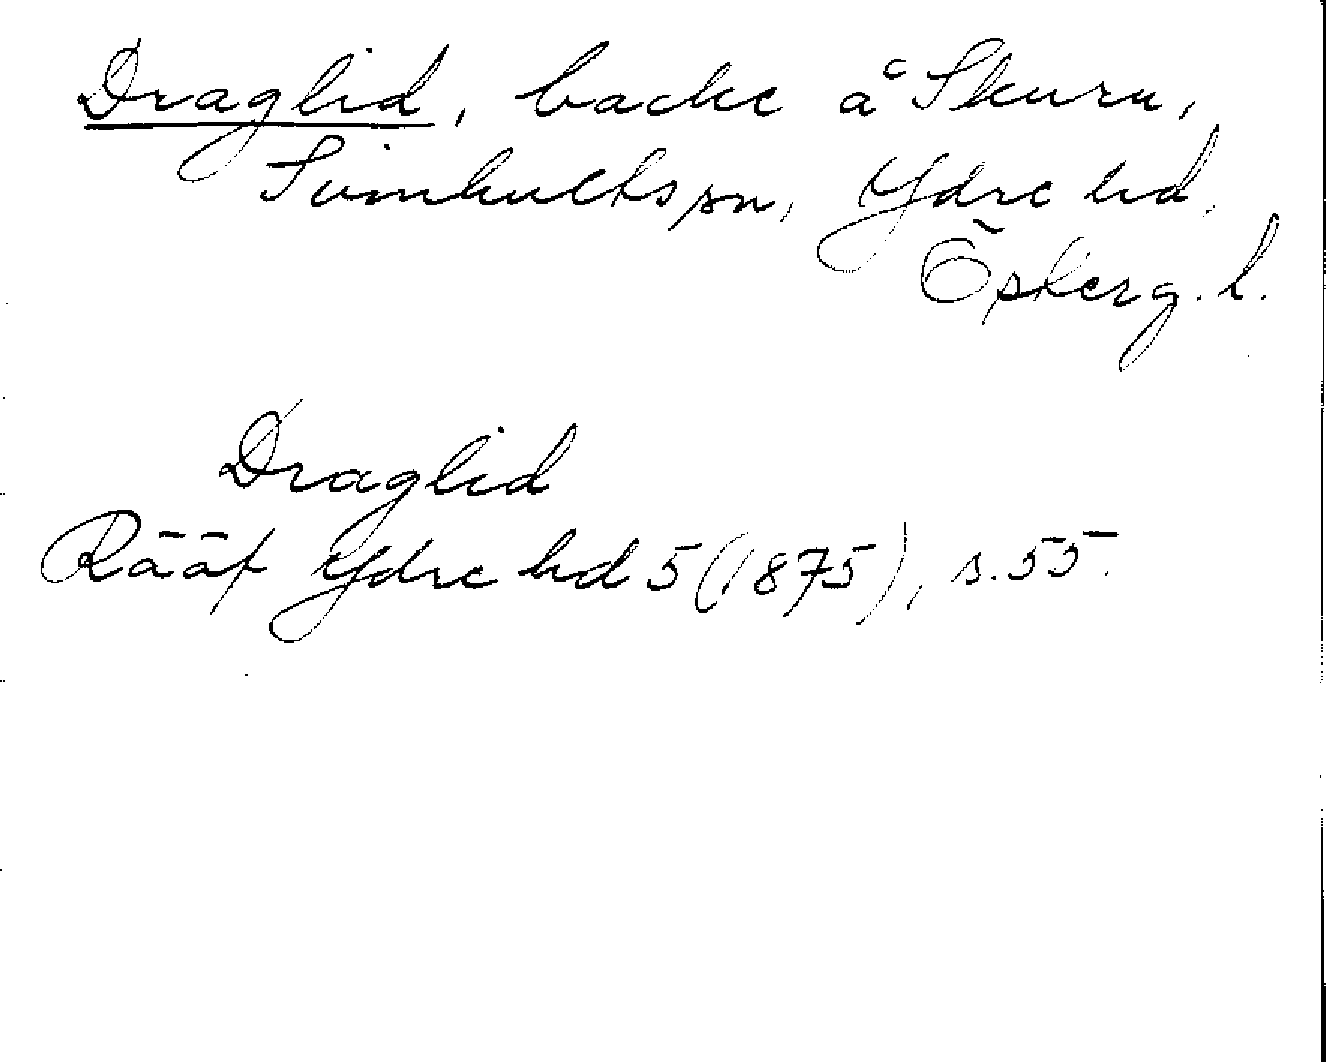 Draglid, backe å Skuru,
Svinhults sn, Ydre hd.
Östergl.
Draglid
Rääf Ydre hd 5 (1875), s. 55.